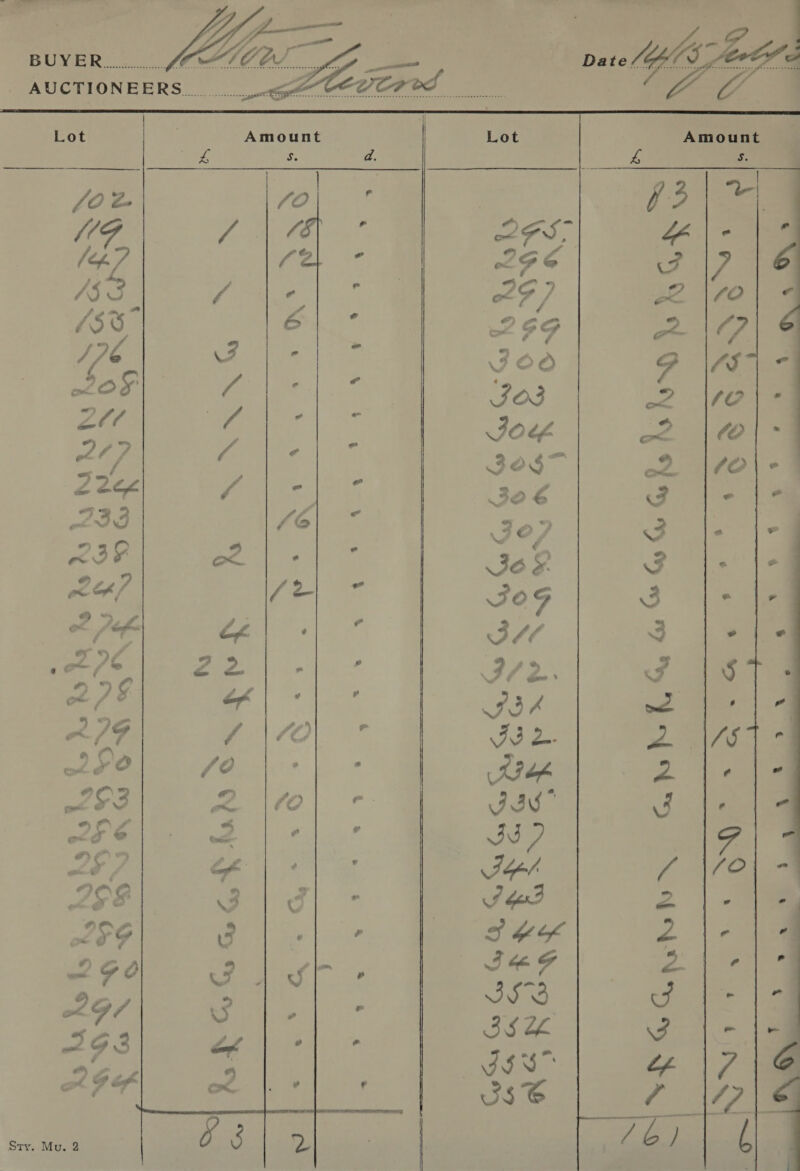 BUYER
Date
AUCTIONEERS
Lot Amount Lot Amount
£ s. d. £ s.
83 2
102 10 -
119 1 18 - 295 4 - -
147 12 - 296 3 7 6
153 1 - - 297 2 10 -
155 6 - 299 2 17 6
176 3 - - 300 9 15 -
208 1 - - 303 2 10 -
211 1 - - 304 2 10 -
217 1 - - 305 2 10 -
224 1 - - 306 3 - -
233 16 - 307 3 - -
238 2 - - 308 3 - -
247 12 - 309 3 - -
274 4 - - 311 3 - -
276 22 - - 312. 3 5 -
278 4 - - 331 2 - -
279 1 10 - 332 2 15 -
280 10 - - 334 2 - -
283 2 10 - 335 3 - -
286 2 - - 337 9 -
287 4 - - 341 1 10 -
288 3 3 - 343 2 - -
289 3 - - 344 2 - -
290 3 5 - 349 2 - -
291 3 - - 353 3 - -
293 4 - - 354 3 - -
294 2 - - 355 4 7 6
356 1 17 6
83 2 161 6
Sty. Mu. 2